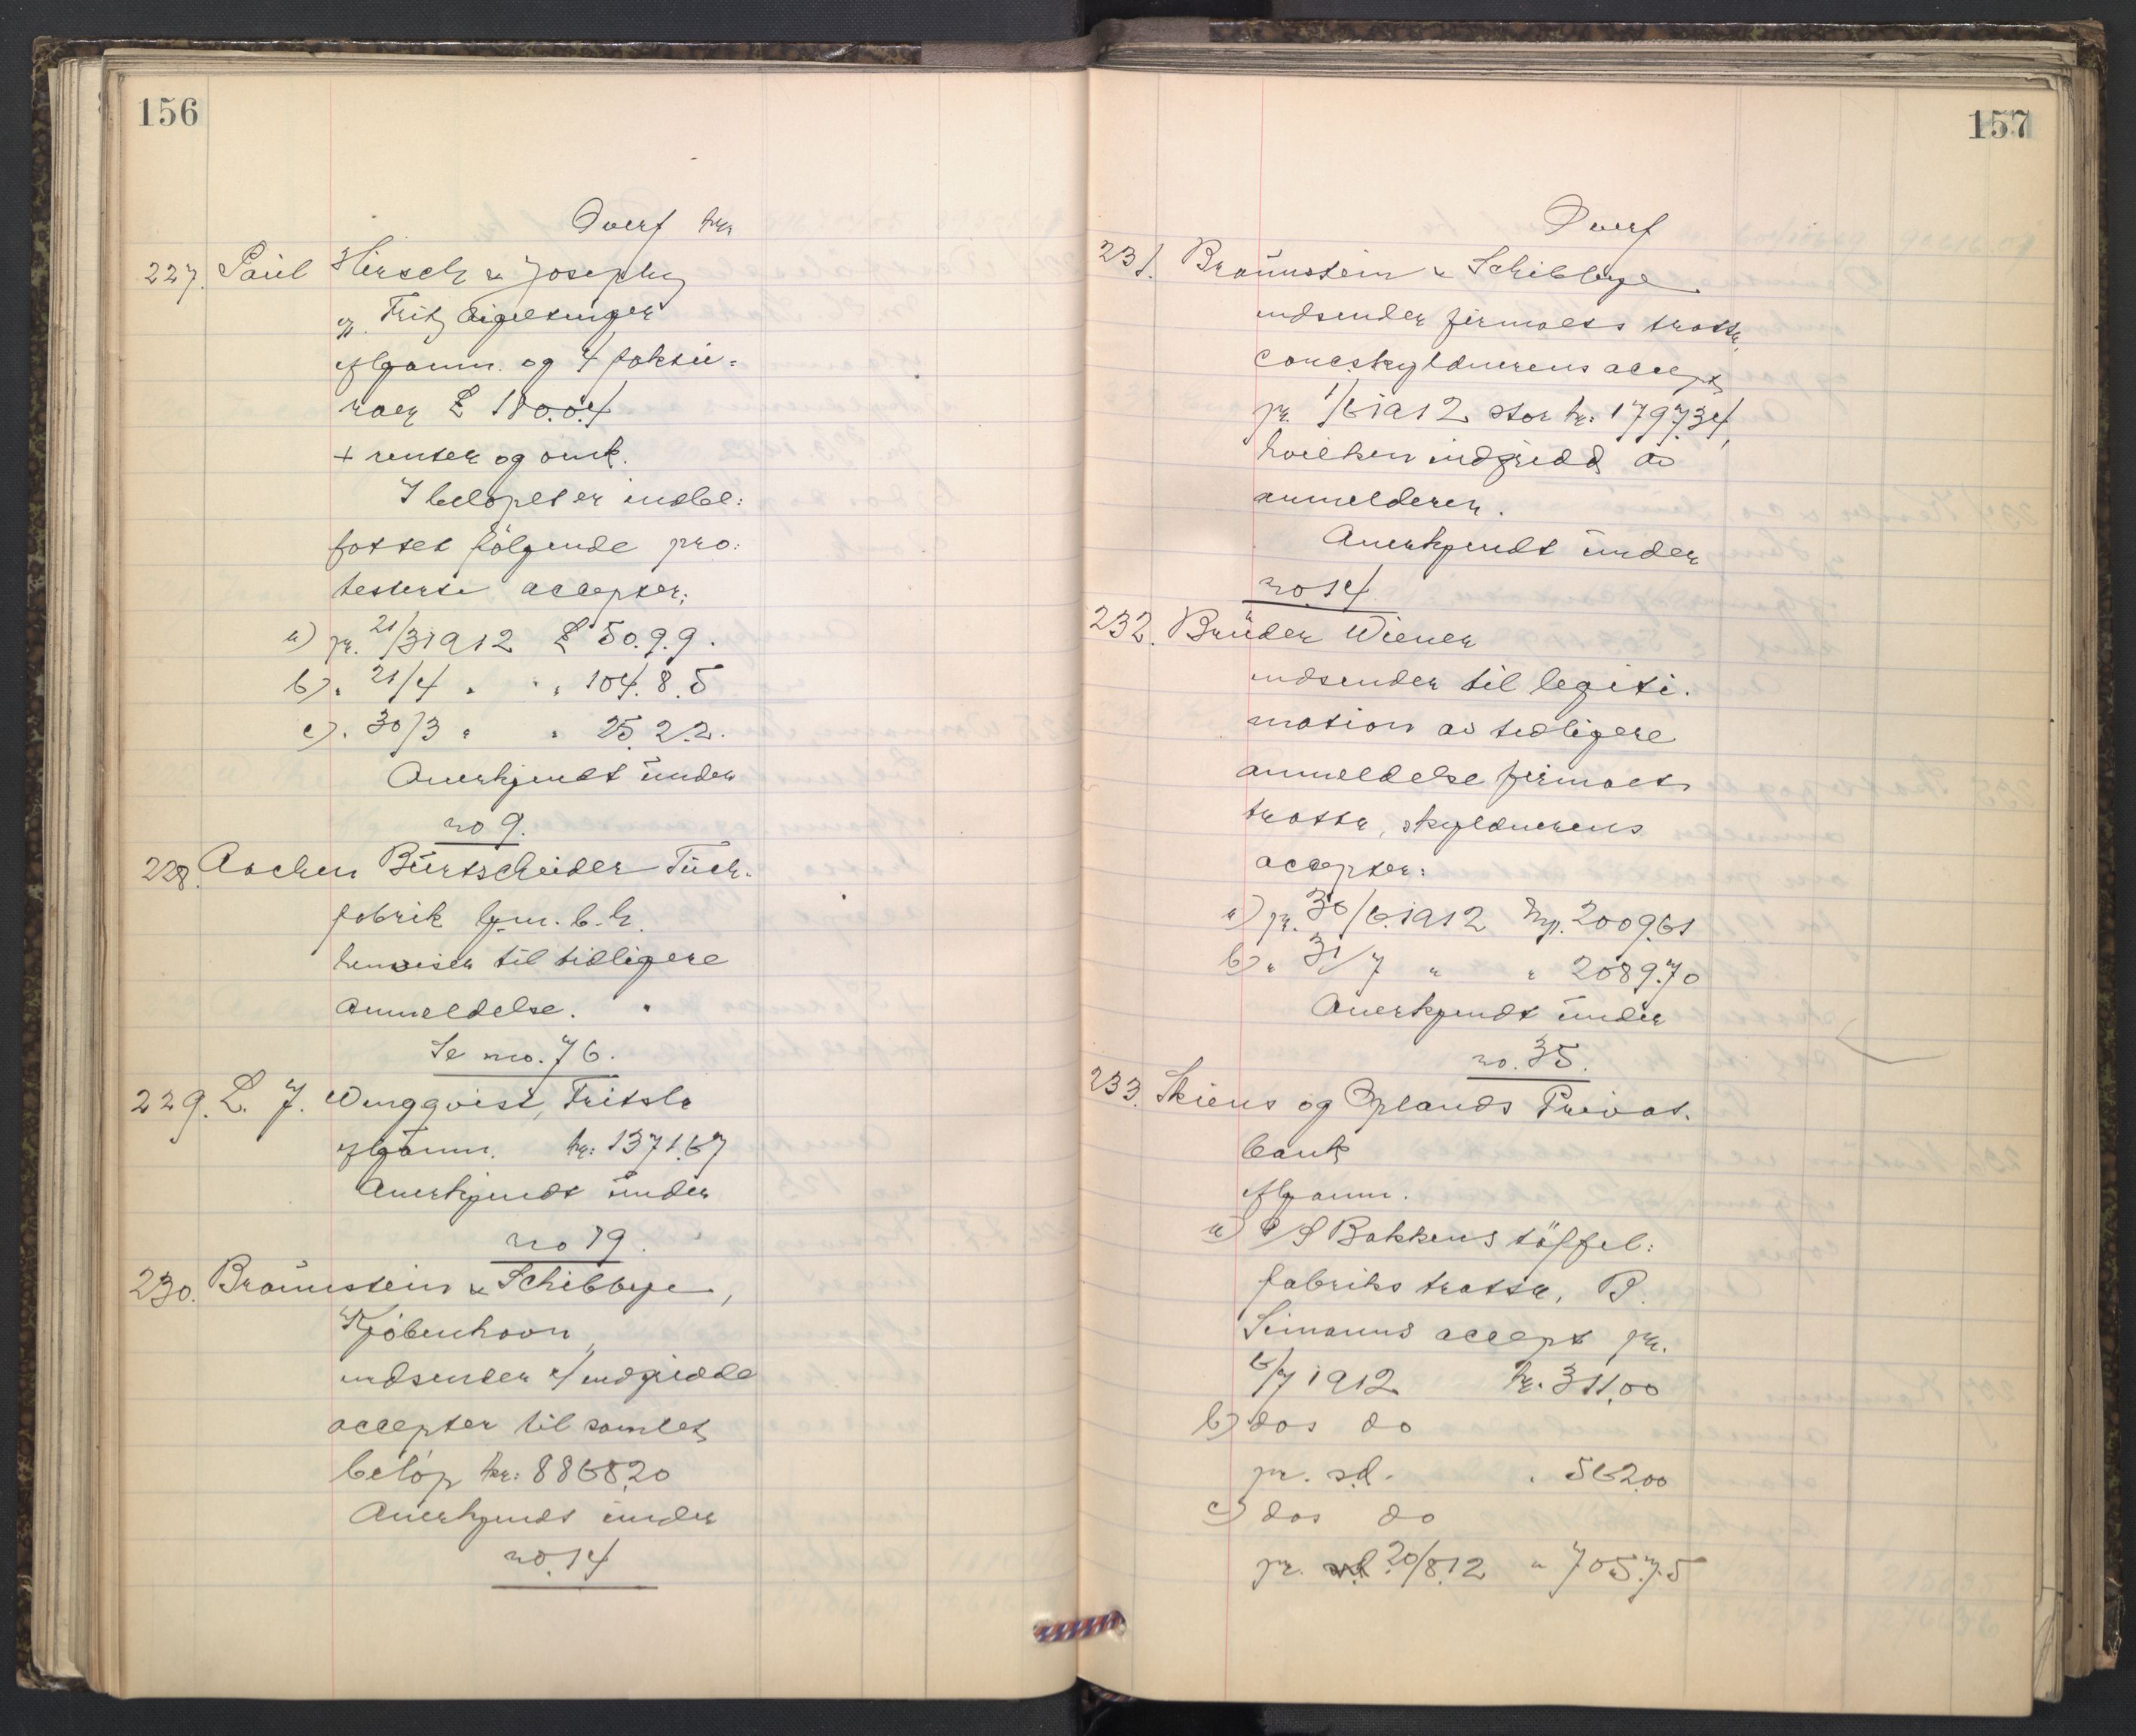 156
Overf kr.
227. Paul Hirsch & Josephy
v. Fritz
iflg anm. og 4 faktu-
raer £ 180.0.4
+ renter og omk.
I beløpet er indbe-
fattet følgende pro-
testerte accepter:
a) pr. 21/3 1912 £ 50.9.9.
b) " 21/4 " " " 104.8.5
c) " 30/3 " " 25.2.2.
Anerkjendt under
no 9.
228. Aachen Burtscheider Tuch-
fabrik G.m.b.h.
henviser til tidligere
anmeldelse.
Se no. 76.
229. L. J. Wingqvist, Fritsla
iflg anm. kr: 1371.67
Anerkjendt under
no 19.
230. Braunstein & Schibbye,
Kjöbenhavn,
indsender 4 indfriede
accepter til samlet
beløp kr: 8868.20
Anerkjendt under
no. 14
157
Overf
231. Braunstein & Schibbye
indsender firmaets tratte,
concskyldnerens accept
pr. 1/6 1912 stor kr: 1797.34,
hvilken indfridd av
anmelderen.
Anerkjendt under
no 14.
232. Brüder Wiener
indsender til legiti-
mation av tidligere
anmeldelse firmaets
tratter, skyldnerens
accepter:
a) pr. 30/6. 1912 2009.61
b) " 31/7 " " 2089.70
Anerkjendt under
no. 35.
233. Skiens og Oplands Privat-
bank
iflg anm.
a) A/S Bakkens töffel-
fabriks tratte, B.
Simanns accept pr.
6/7 1912 kr. 311.00
b) dos do
pr. s.d. " 562.00
c) dos do
pr. 20/8.12 " 705.75